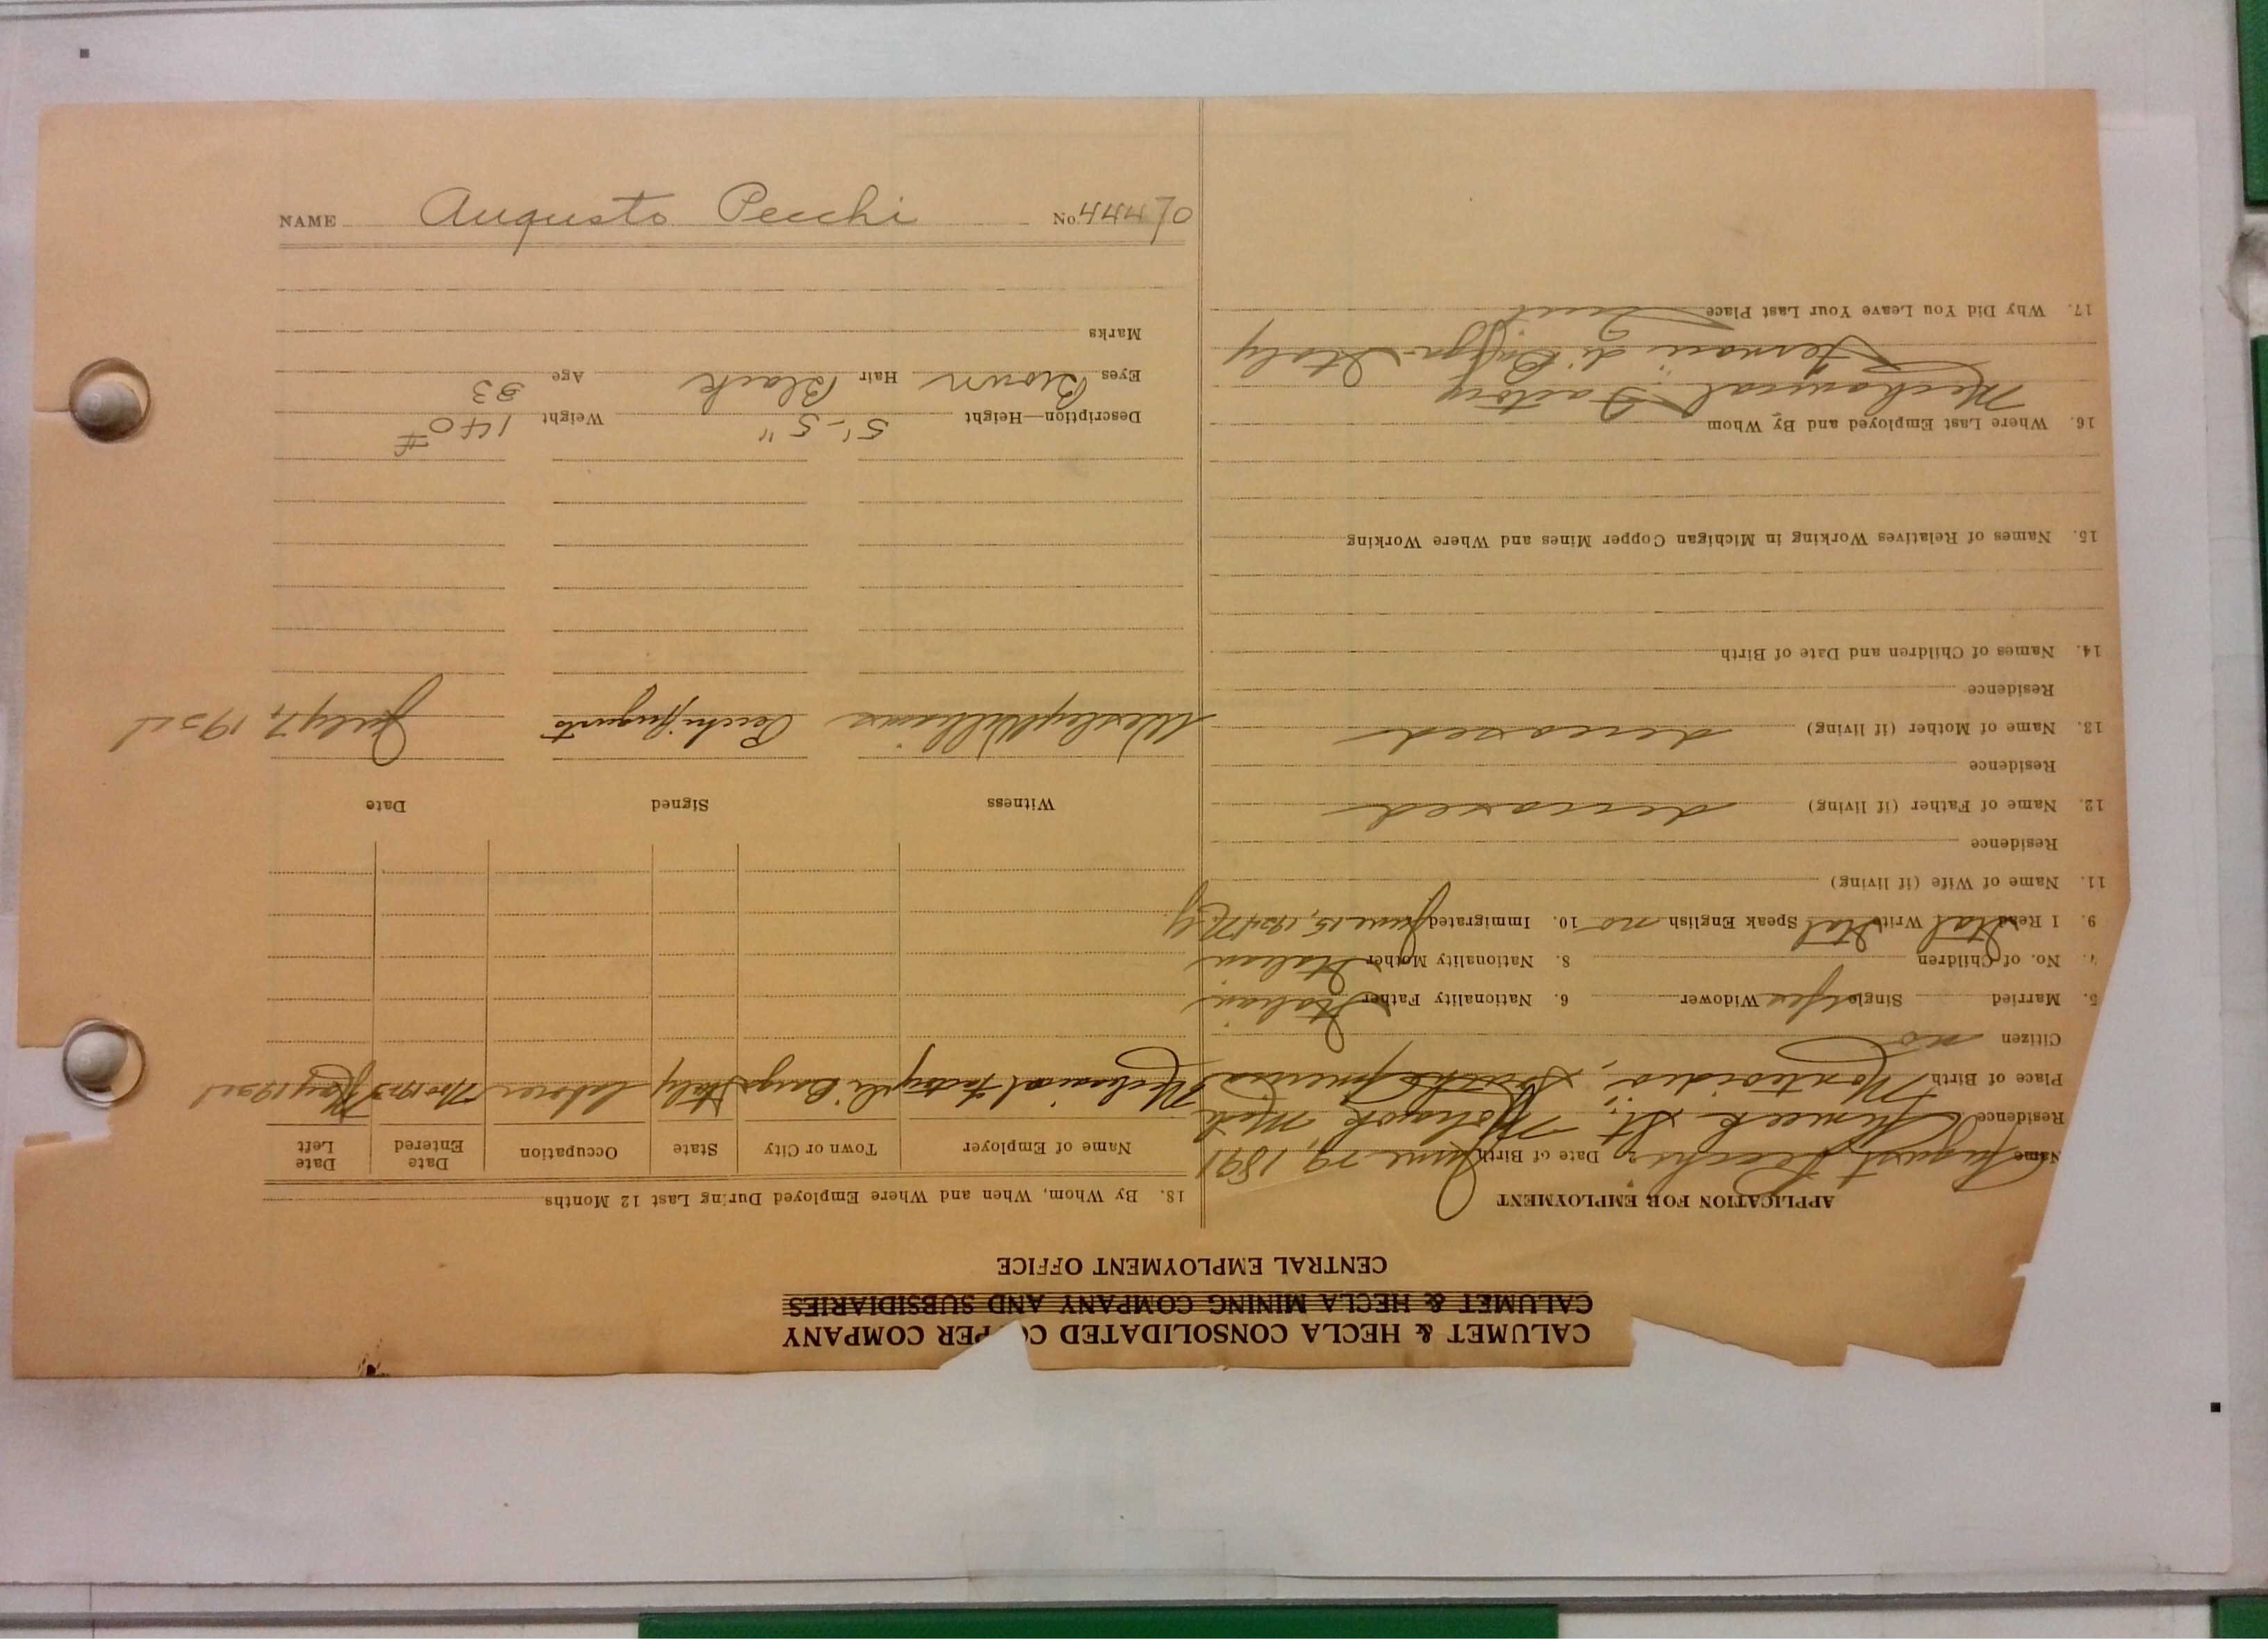 CALUMET & HECLA CONSOLIDATED COPPER COMPANY
CALUMET & HECLA MINING COMPANY AND SUBSIDIARIES
CENTRAL EMPLOYMENT OFFICE
APPLICATION FOR EMPLOYMENT
Name August Pecchi Date of Birth June 29, 1891
Residence Ahmeek St., Mohawk Mich
Place of Birth Montevideo, South America
Citizen no
5. Married Single yes Widower 6. Nationality Father Italian
7. No. of Children 8. Nationality Mother Italian
9. I Read Ital Write Ital Speak English no 10. Immigrated June 15, 1924 N.Y
11. Name of Wife (if living)
Residence
12. Name of Father (if living) deceased
Residence
13. Name of Mother (if living) deceased
Residence
14. Names of Children and Date of Birth
15. Names of Relatives Working in Michigan Copper Mines and Where Working
16. Where Last Employed and By Whom
Mechanical Factory
di Italy
17. Why Did You Leave Your Last Place Quit
18. By Whom, When and Where Employed During Last 12 Months
Name of Employer Town or City State Occupation Date Entered Date Left
Mechanical Factory di Barga Italy laborer Nov 1923 May 1924
Witness Signed Date
Wesley Williams Pecchi Augusto July 7, 1924
Description—Height 5'-5" Weight 140#
Eyes Brown Hair Black Age 33
Marks
NAME Augusto Pecchi No. 44470